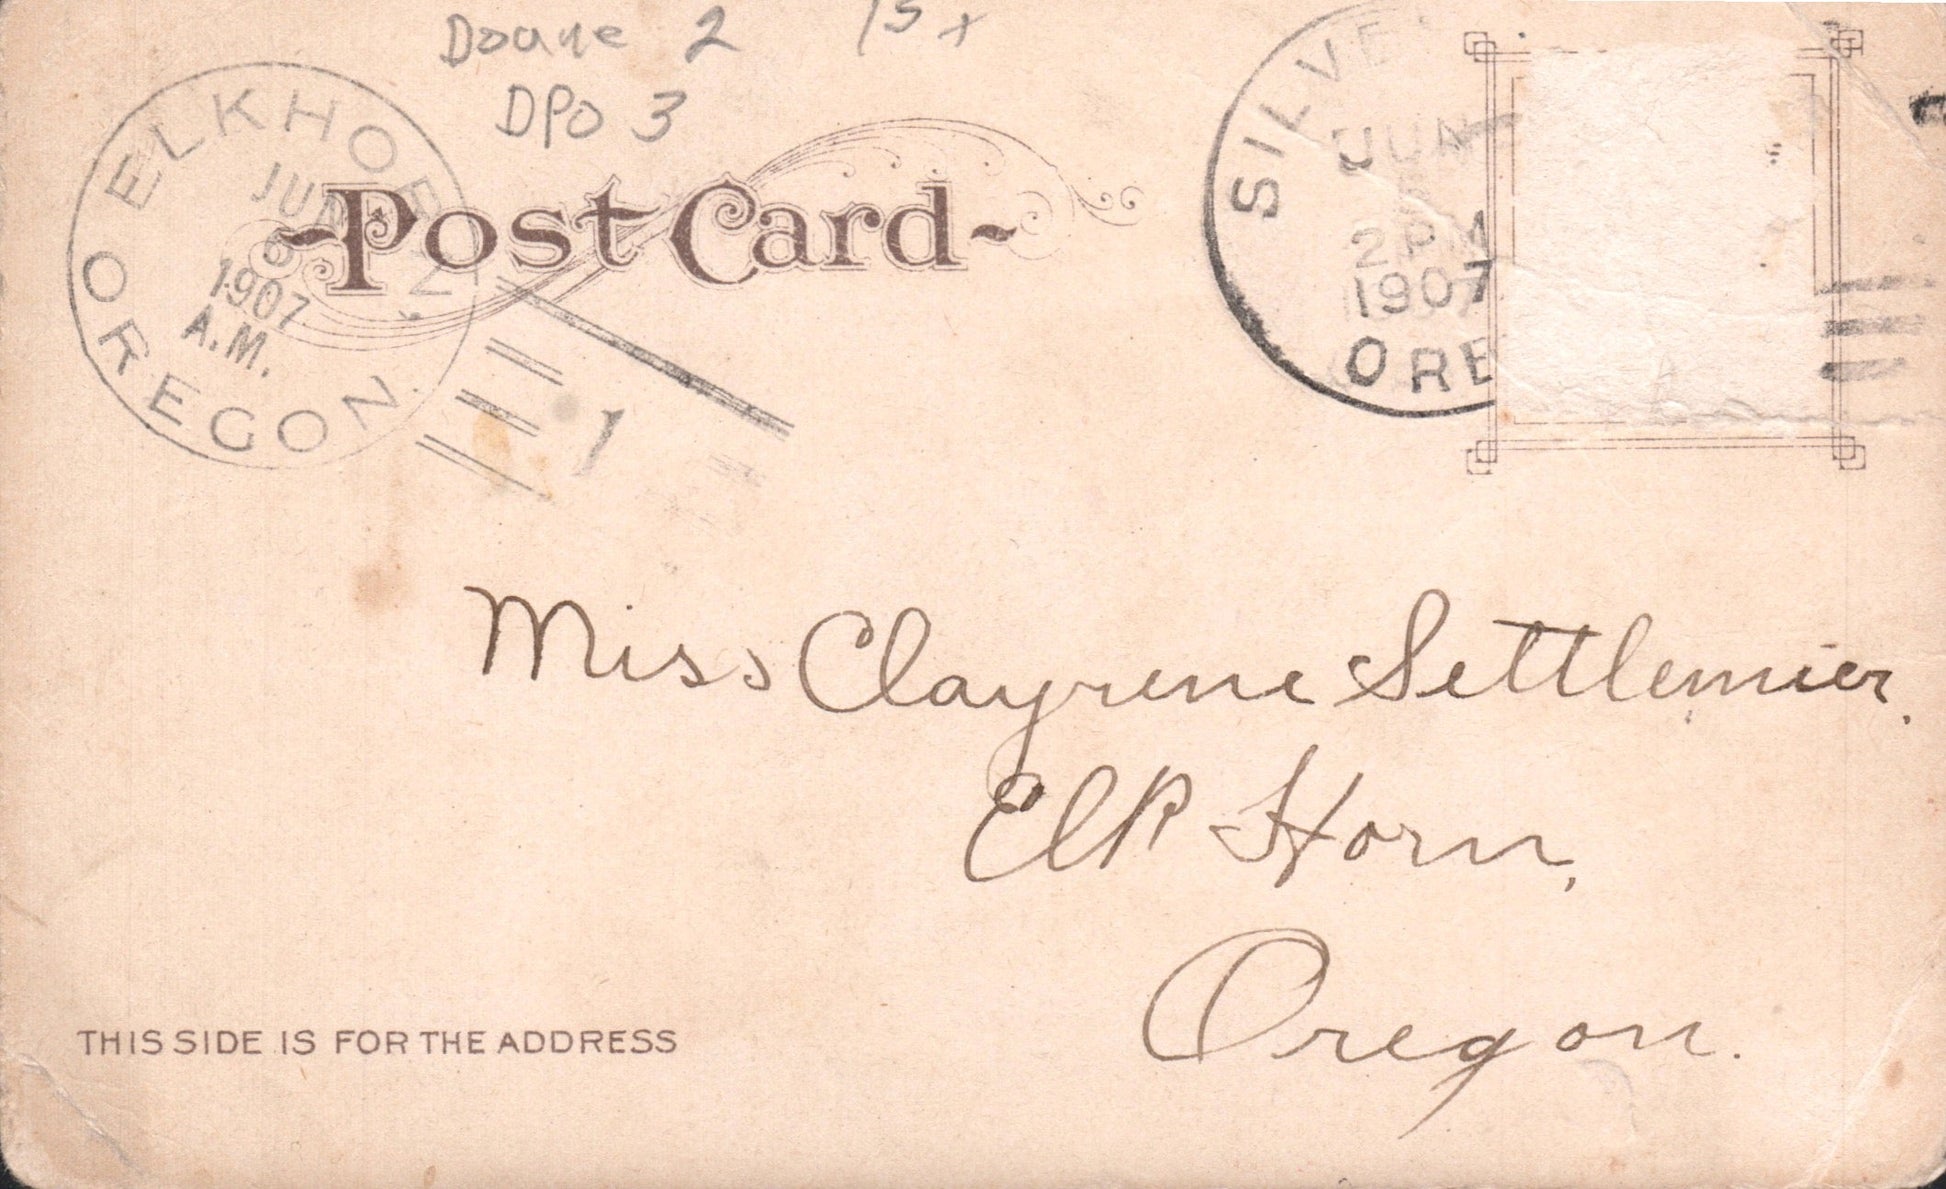 Doane 2 15 x
DPO 3
ELKHORN
JUN
6
1907
A.M.
OREGON
1
Post Card
JUN
2 PM
1907
ORE
Miss Clayrene Settlemier.
Elk Horn,
Oregon.
THIS SIDE IS FOR THE ADDRESS